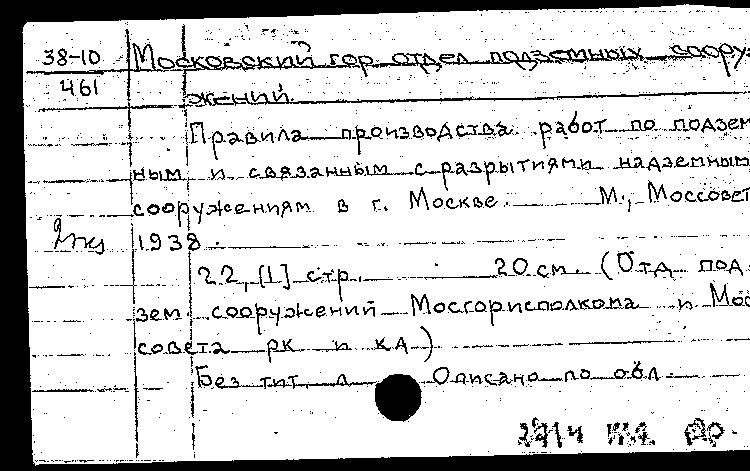 38-10
461
Московский гор. отдел подземных соору-
жений.
Правила производства работ по подзем
ным и связанным с разрытиями надземным
сооружениям в г. Москве. М., Моссовет
1938.
22, [1] стр. 20 см. (Отд. под
зем. сооружений Мосгорисполкома и Мос
совета рк и кд)
Без тит. л. Описано по обл.